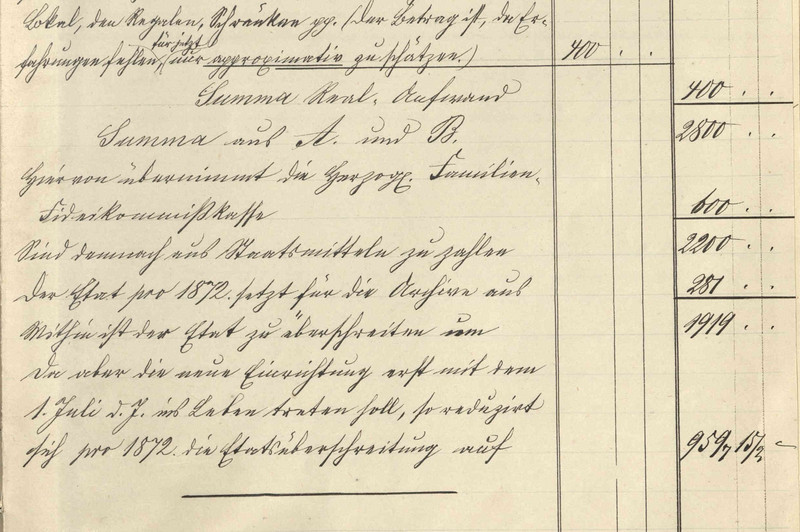 Lokal, den Regalen, Schränken pp. (Der Betrag ist, da Er-
für jetzt
fahrungen fehlen, nur approximativ zu schätzen.) 400 . .
Summa Real-Aufwand 400 . .
Summa aus A. und B. 2800 . .
Hiervon übernimmt die Herzogl. Familien-
Fideikommißkasse 600 . .
Sind demnach aus Staatsmitteln zu zahlen 2200 . .
Der Etat pro 1872. setzt für die Archive aus 281 . .
Mithin ist der Etat zu überschreiten um 1919 . .
Da aber die neue Einrichtung erst mit dem
1. Juli d. J. ins Leben treten soll, so reduzirt
sich pro 1872. die Etatsüberschreitung auf 959 15